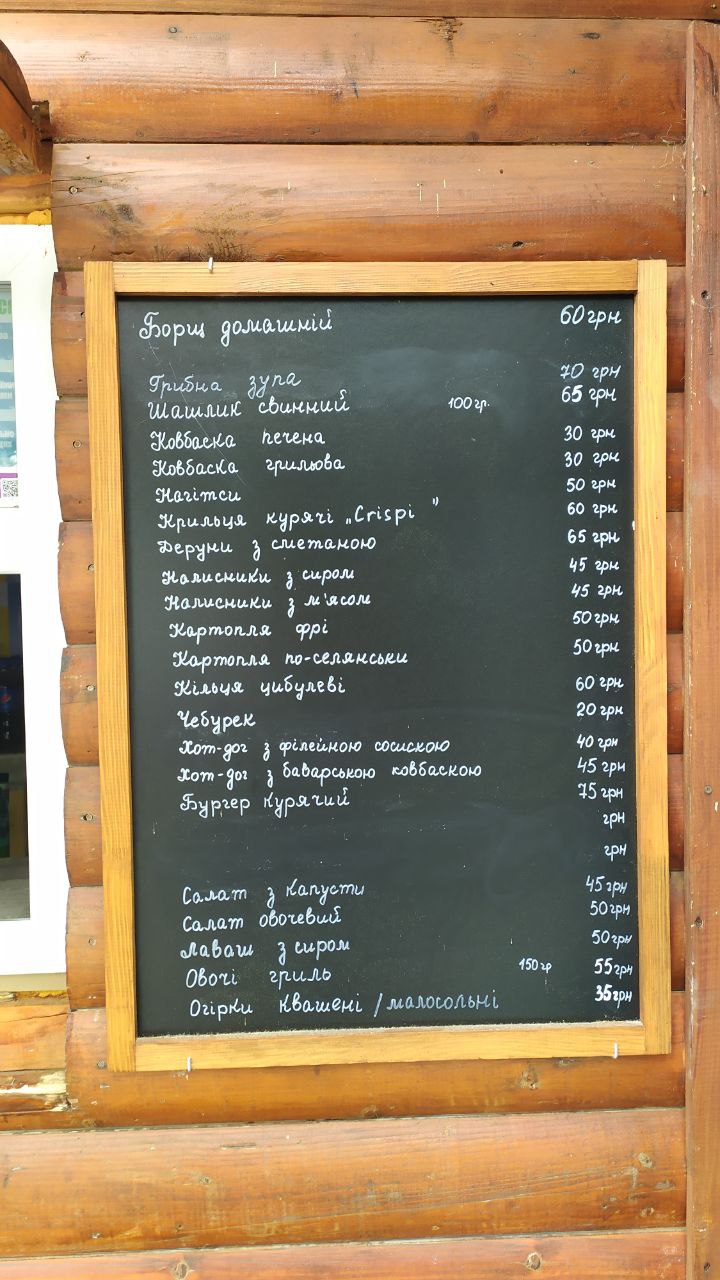 Борщ домашній 60 грн
Грибна зупа 70 грн
Шашлик свинний 100 гр. 65 грн
Ковбаска печена 30 грн
Ковбаска грильова 30 грн
Нагітси 50 грн
Крильця курячі „Crispi" 60 грн
Деруни з сметаною 65 грн
Налисники з сиром 45 грн
Налисники з м'ясом 45 грн
Картопля фрі 50 грн
Картопля по-селянськи 50 грн
Кільця цибулеві 60 грн
Чебурек 20 грн
Хот-дог з філейною сосискою 40 грн
Хот-дог з баварською ковбаскою 45 грн
Бургер курячий 75 грн
грн
грн
Салат з капусти 45 грн
Салат овочевий 50 грн
Лаваш з сиром 50 грн
Овочі гриль 150 гр 55 грн
Огірки квашені / малосольні 35 грн